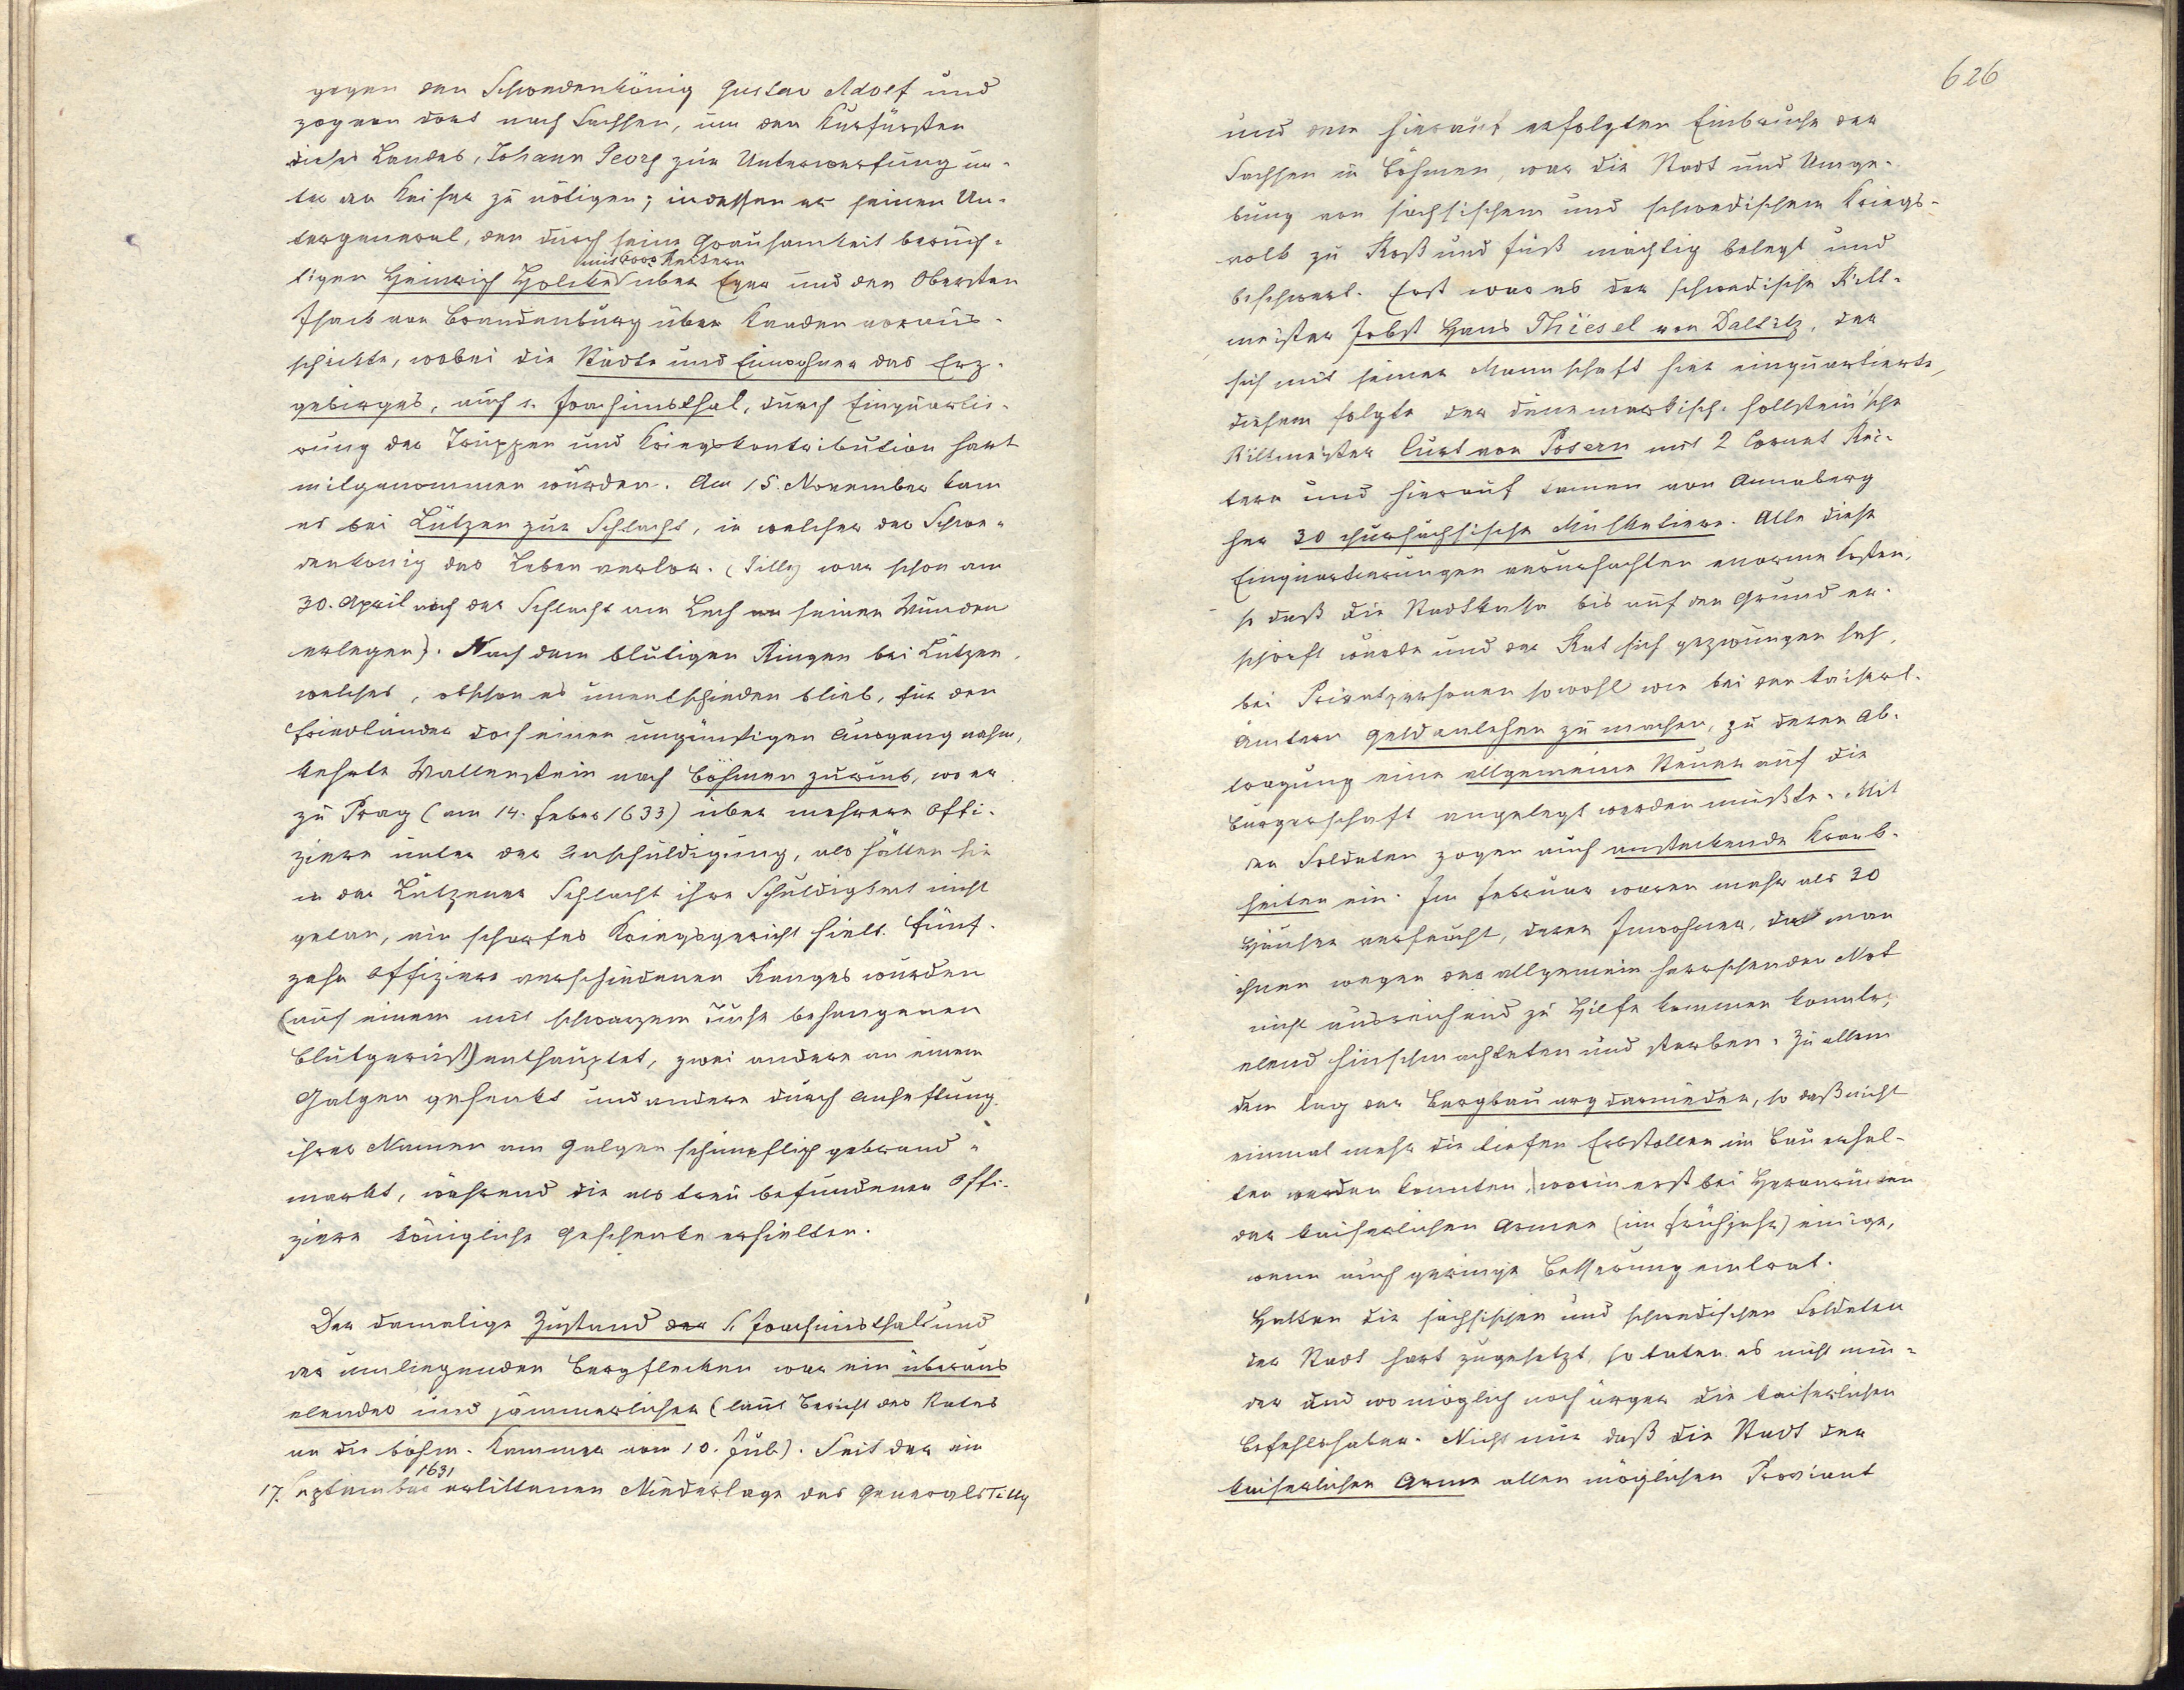 gegen den Schwedenkönig Gustav Adolf und
zog von dort nach Sachsen, um den Kurfürsten
dieses Landes, Johann Georg zur Unterwerfung un-
ter den Kaiser zu nötigen; indessen er seinen Un-
tergeneral, den durch seine Grausamkeit berüch-
mit 6000 Reitern
tigen Heinrich Holcke über Eger und den Obersten
Isack von Brandenburg über Kaaden voraus-
schickte, wobei die Städte und Einwohner des Erz-
gebirges, auch s. Joachimsthal, durch Einquartie-
rung der Truppen und Kriegskontribution hart
mitgenommen wurden. Am 15. November kam
es bei Lützen zur Schlacht, in welcher der Schwe-
denkönig das Leben verlor. (Tilly war schon am
30. April nach der Schlacht am Lech an seinen Wunden
erlegen). Nach dem blutigen Ringen bei Lützen,
welches, obschon es unentschieden blieb, für den
Friedländer doch einen ungünstigen Ausgang nahm,
kehrte Wallenstein nach Böhmen zurück, wo er
zu Prag (am 14. Feber 1633) über mehrere Offi-
ziere unter der Anschuldigung, als hätten sie
in der Lützener Schlacht ihre Schuldigkeit nicht
getan, ein scharfes Kriegsgericht hielt. Fünf-
zehn Offiziere verschiedenen Ranges wurden
(auf einem mit schwarzem Tuche behangenen
Blutgerüst) enthauptet, zwei andere an einem
Galgen gehenkt und andere durch Anheftung
ihrer Namen am Galgen schimpflich gebrand-
markt, während die als treu befundenen Offi-
ziere königliche Geschenke erhielten.
Der damalige Zustand der S. Joachimsthals und
der umliegenden Bergflecken war ein überaus
elender und jämmerlicher (laut Bericht des Rates
an die böhm. Kammer vom 10. Juli). Seit der im
1631
17. September erlittenen Niederlage des Generals Tilly
626
und dem hierauf erfolgten Einbruche der
Sachsen in Böhmen, war die Stadt und Umge-
bung von sächsischem und schwedischem Kriegs-
volk zu Roß und Fuß mächtig belegt und
beschwert. Erst war es der schwedische Ritt-
meister Jobst Hans Thiesel von Daltitz, der
sich mit seiner Mannschaft hier einquartierte,
diesem folgte der dänemarkisch-hollstein'sche
Rittmeister Curt von Posern mit 2 Cornet Rei-
tern und hierauf kamen von Annaberg
her 30 chursächsische Musketiere. Alle diese
Einquartierungen verursachten enorme Kosten,
so daß die Stadtkassa bis auf den Grund er-
schöpft wurde und der Rat sich gezwungen sah,
bei Privatpersonen sowohl wie bei den kaiserl.
Ämtern Geldanlehen zu machen, zu deren Ab-
tragung eine allgemeine Steuer auf die
Bürgerschaft angelegt werden mußte. Mit
den Soldaten zogen auch ansteckende Krank-
heiten ein. Im Februar waren mehr als 30
Häuser verseucht, deren Inwohner, da man
ihnen wegen der allgemein herrschenden Not
nicht ausreichend zu Hilfe kommen konnte,
elend hinschmachteten und starben. Zu allem
dem lag der Bergbau arg darnieder, so daß nicht
einmal mehr die tiefen Erbstollen im Bau erhal-
ten werden konnten, worin erst bei Heranrücken
der kaiserlichen Armee (im Frühjahr) einige,
wenn auch geringe Besserung eintrat.
Hatten die sächsischen und schwedischen Soldaten
der Stadt hart zugesetzt, so taten es nicht min-
der und womöglich noch ärger die kaiserlichen
Befehlshaber. Nicht nur daß die Stadt der
kaiserlichen Armee allen möglichen Proviant